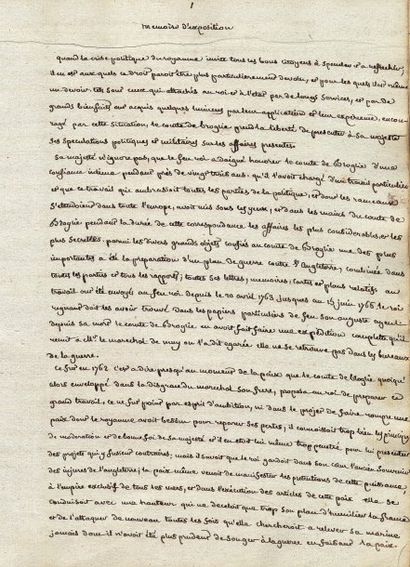 1
memoire d'exposition
quand la crise politique du royaume invite tous les bons citoyens à speculer et a reflechir,
il en est aux quels ce droit paroit etre plus particulierement devolu, et pour les quels c'est même
un devoir. tels sont ceux qui attachés au roi et à l'état par de longs services, et par de
grands bienfaits ont acquis quelques lumieres par leur application et leur experience. encou-
ragé par cette situation, le comte de broglie prend la liberté de presenter à sa majesté
ses speculations politiques et militaires sur les affaires presentes.
sa majesté n'ignore pas, que le feu roi a daigné honorer le comte de Broglie d'une
confiance intime pendant près de vingt trois ans. qu'il l'avoit chargé d'un travail particulier
et que ce travail qui embrassoit toutes les parties de la politique, et dont les rameaux
s'etendoient dans toute l'europe, avoit mis sous les yeux, et dans les mains du comte de
Broglie pendant la durée de cette correspondance les affaires les plus considerables, et les
plus secrettes. parmi les divers grands objets confiés au comte de Broglie une des plus
importantes a été la preparation d'un plan de guerre contre l'Angleterre, combinée dans
toutes les parties et tous les rapports; toutes ses lettres, memoires, cartes et plans relatifs au
travail ont été envoyés au feu roi depuis le 20 avril 1763 jusques au 14 juin 1766. le roi
regnant doit les avoir trouvé dans les papiers particuliers de feu son auguste ayeul
depuis sa mort le comte de Broglie en avoit fait faire une expédition complette qu'il
remit à Mr. le marechal de muy on l'a dit egarée elle ne se retrouve pas dans les bureaux
de la guerre.
Ce fut en 1762 c'est a dire presqu'au moment de la paix que le comte de Broglie quoiqu'
alors enveloppé dans la disgrace du marechal son frere, proposa au roi de preparer ce
grand travail, ce ne fut point par esprit d'ambition, ni dans le projet de faire rompre une
paix dont le royaume avoit besoin pour reparer ses pertes, il connoissoit trop bien les principes
de moderation et de bonne foi de sa majesté et il en etoit lui même trop penetré pour lui presenter
des projets qui y fussent contraires; mais il savoit que le roi gardoit dans son cœur l'ancien souvenir
des injures de l'angleterre, la paix même venoit de manifester les pretentions de cette puissance
à l'empire exclusif de tous les mers, et dans l'execution des articles de cette paix elle se
conduisoit avec une hauteur qui ne deceloit que trop son plan d'humilier la france
et de l'attaquer de nouveau toutes les fois qu'elle chercheroit a relever sa marine
jamais donc il n'avoit été plus prudent de songer à la guerre en faisant la paix.